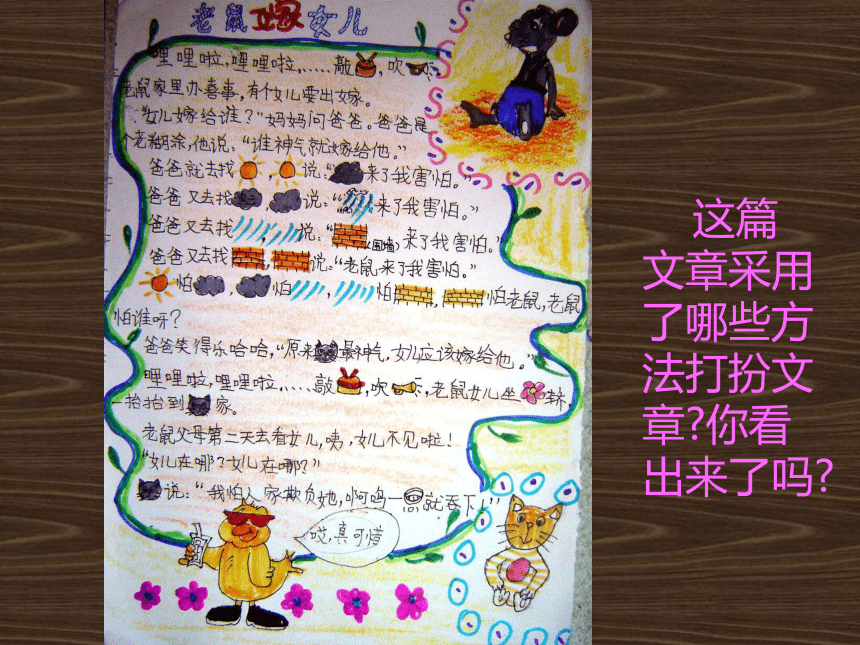 老鼠嫁女儿
哩哩啦,哩哩啦,……敲,吹,
老鼠家里办喜事,有个女儿要出嫁。
“女儿嫁给谁?”妈妈问爸爸。爸爸是
个老糊涂,他说:“谁神气就嫁给他。”
爸爸就去找,说:“来了我害怕。”
爸爸又去找,说:“来了我害怕。”
爸爸又去找,说:“(围墙)来了我害怕。”
爸爸又去找,说:“老鼠来了我害怕。”
怕,怕,怕,怕老鼠,老鼠
怕谁呀?
爸爸笑得乐哈哈,“原来最神气,女儿应该嫁给他。”
哩哩啦,哩哩啦,……敲,吹,老鼠女儿坐轿,
一抬抬到家。
老鼠父母第二天去看女儿,咦,女儿不见啦!
“女儿在哪?女儿在哪?”
说:“我怕人家欺负她,啊呜一就吞下!”
哎,真可惜
这篇
文章采用
了哪些方
法打扮文
章?你看
出来了吗?